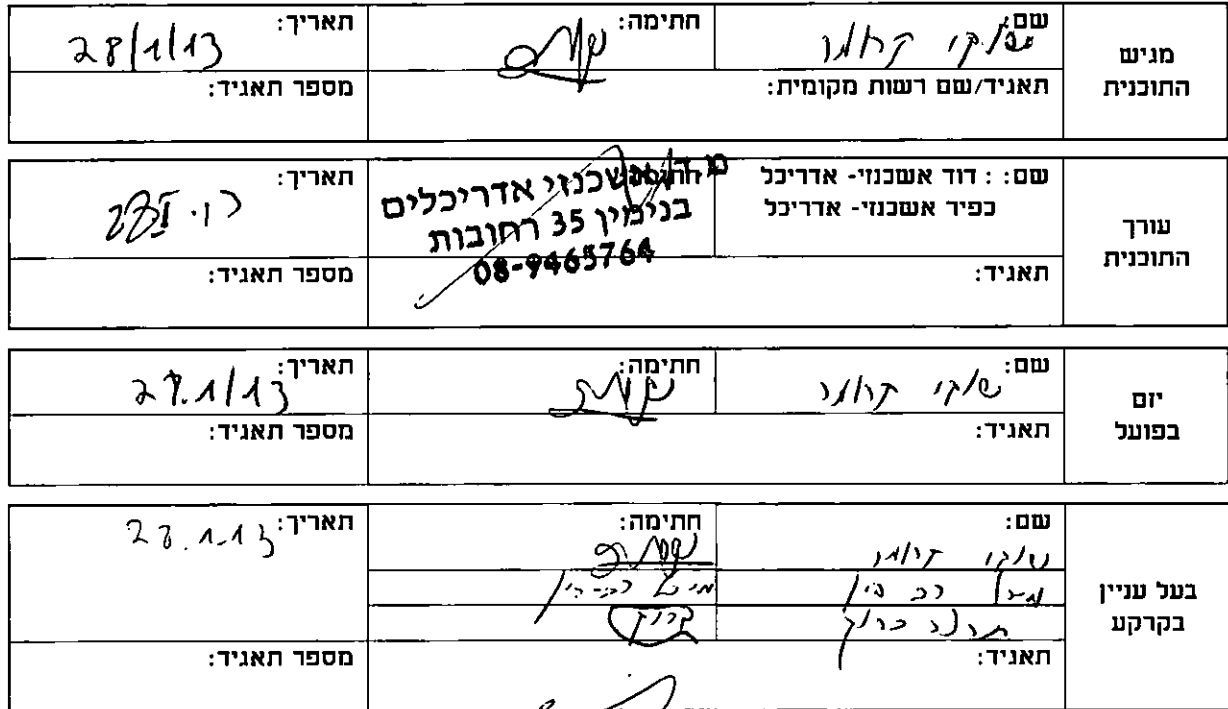 מגיש התוכנית
שם: קרומר
חתימה:
תאריך: 28/1/13
תאגיד/שם רשות מקומית:
מספר תאגיד:
עורך התוכנית
שם: : דוד אשכנזי- אדריכל
כפיר אשכנזי- אדריכל
חתימה:
אשכנזי אדריכלים
בנימין 35 רחובות
08-9465764
תאריך:
תאגיד:
מספר תאגיד:
יזם בפועל
שם: שוקי קרומר
חתימה:
תאריך:
תאגיד:
מספר תאגיד:
בעל עניין בקרקע
שם:
שוקי קרומר
ברוך
חתימה:
תאריך: 28.1.13
תאגיד:
מספר תאגיד: